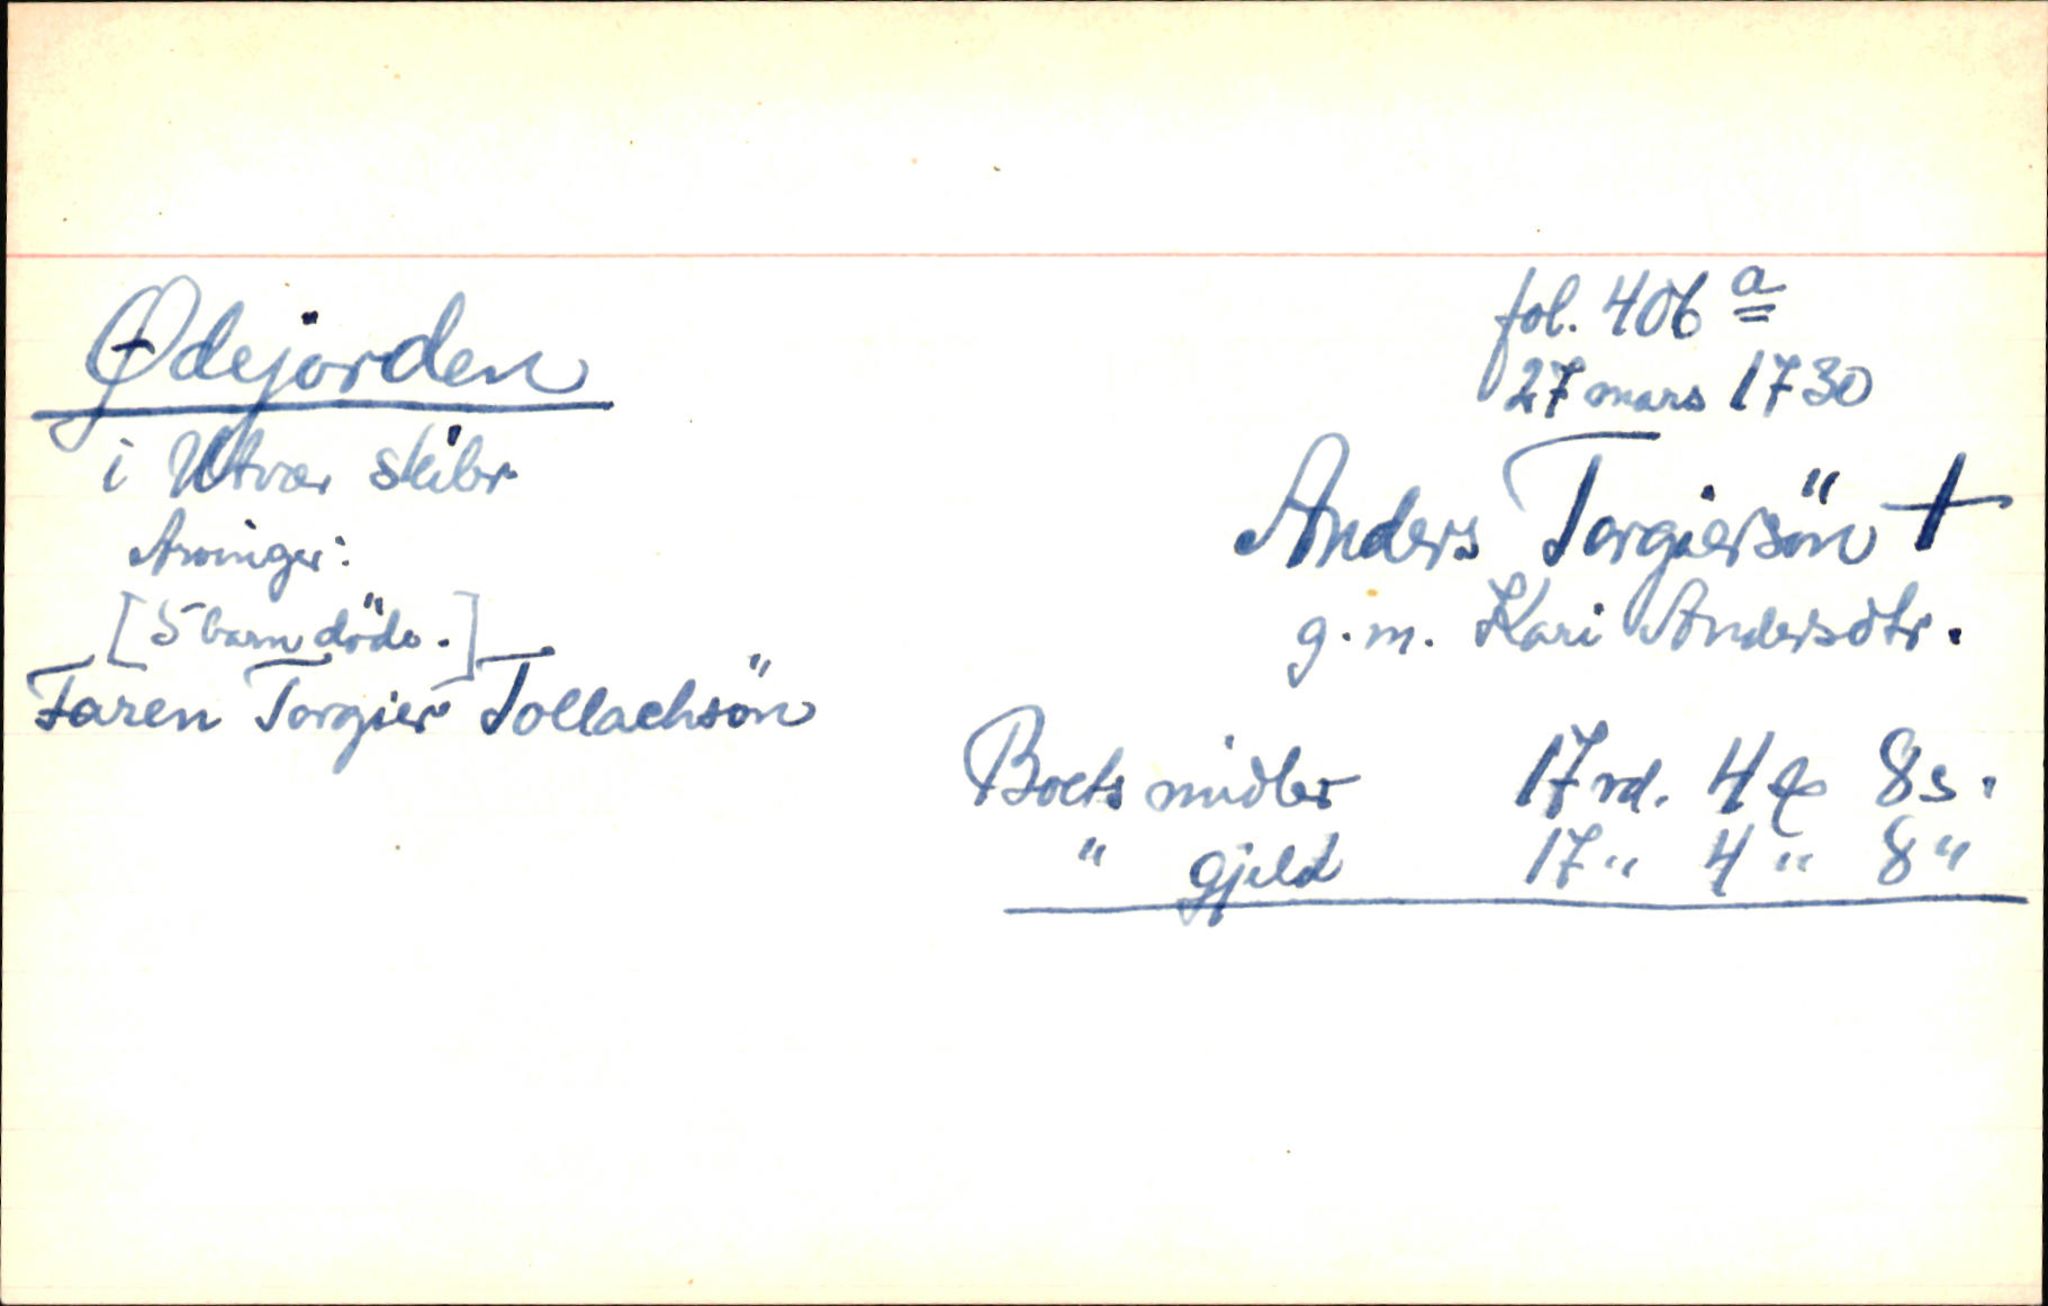 Ødejorden
i Utvær skibr
Arvinger:
[5 barn döde.]
Faren Torgier Tollachsön
fol. 406 a
27 mars 1730
Anders Torgiersön †
g.m. Kari Andersdtr.
Boets midler 17 rd. 4 8 s.
" gjeld 17 " 4 " 8 "